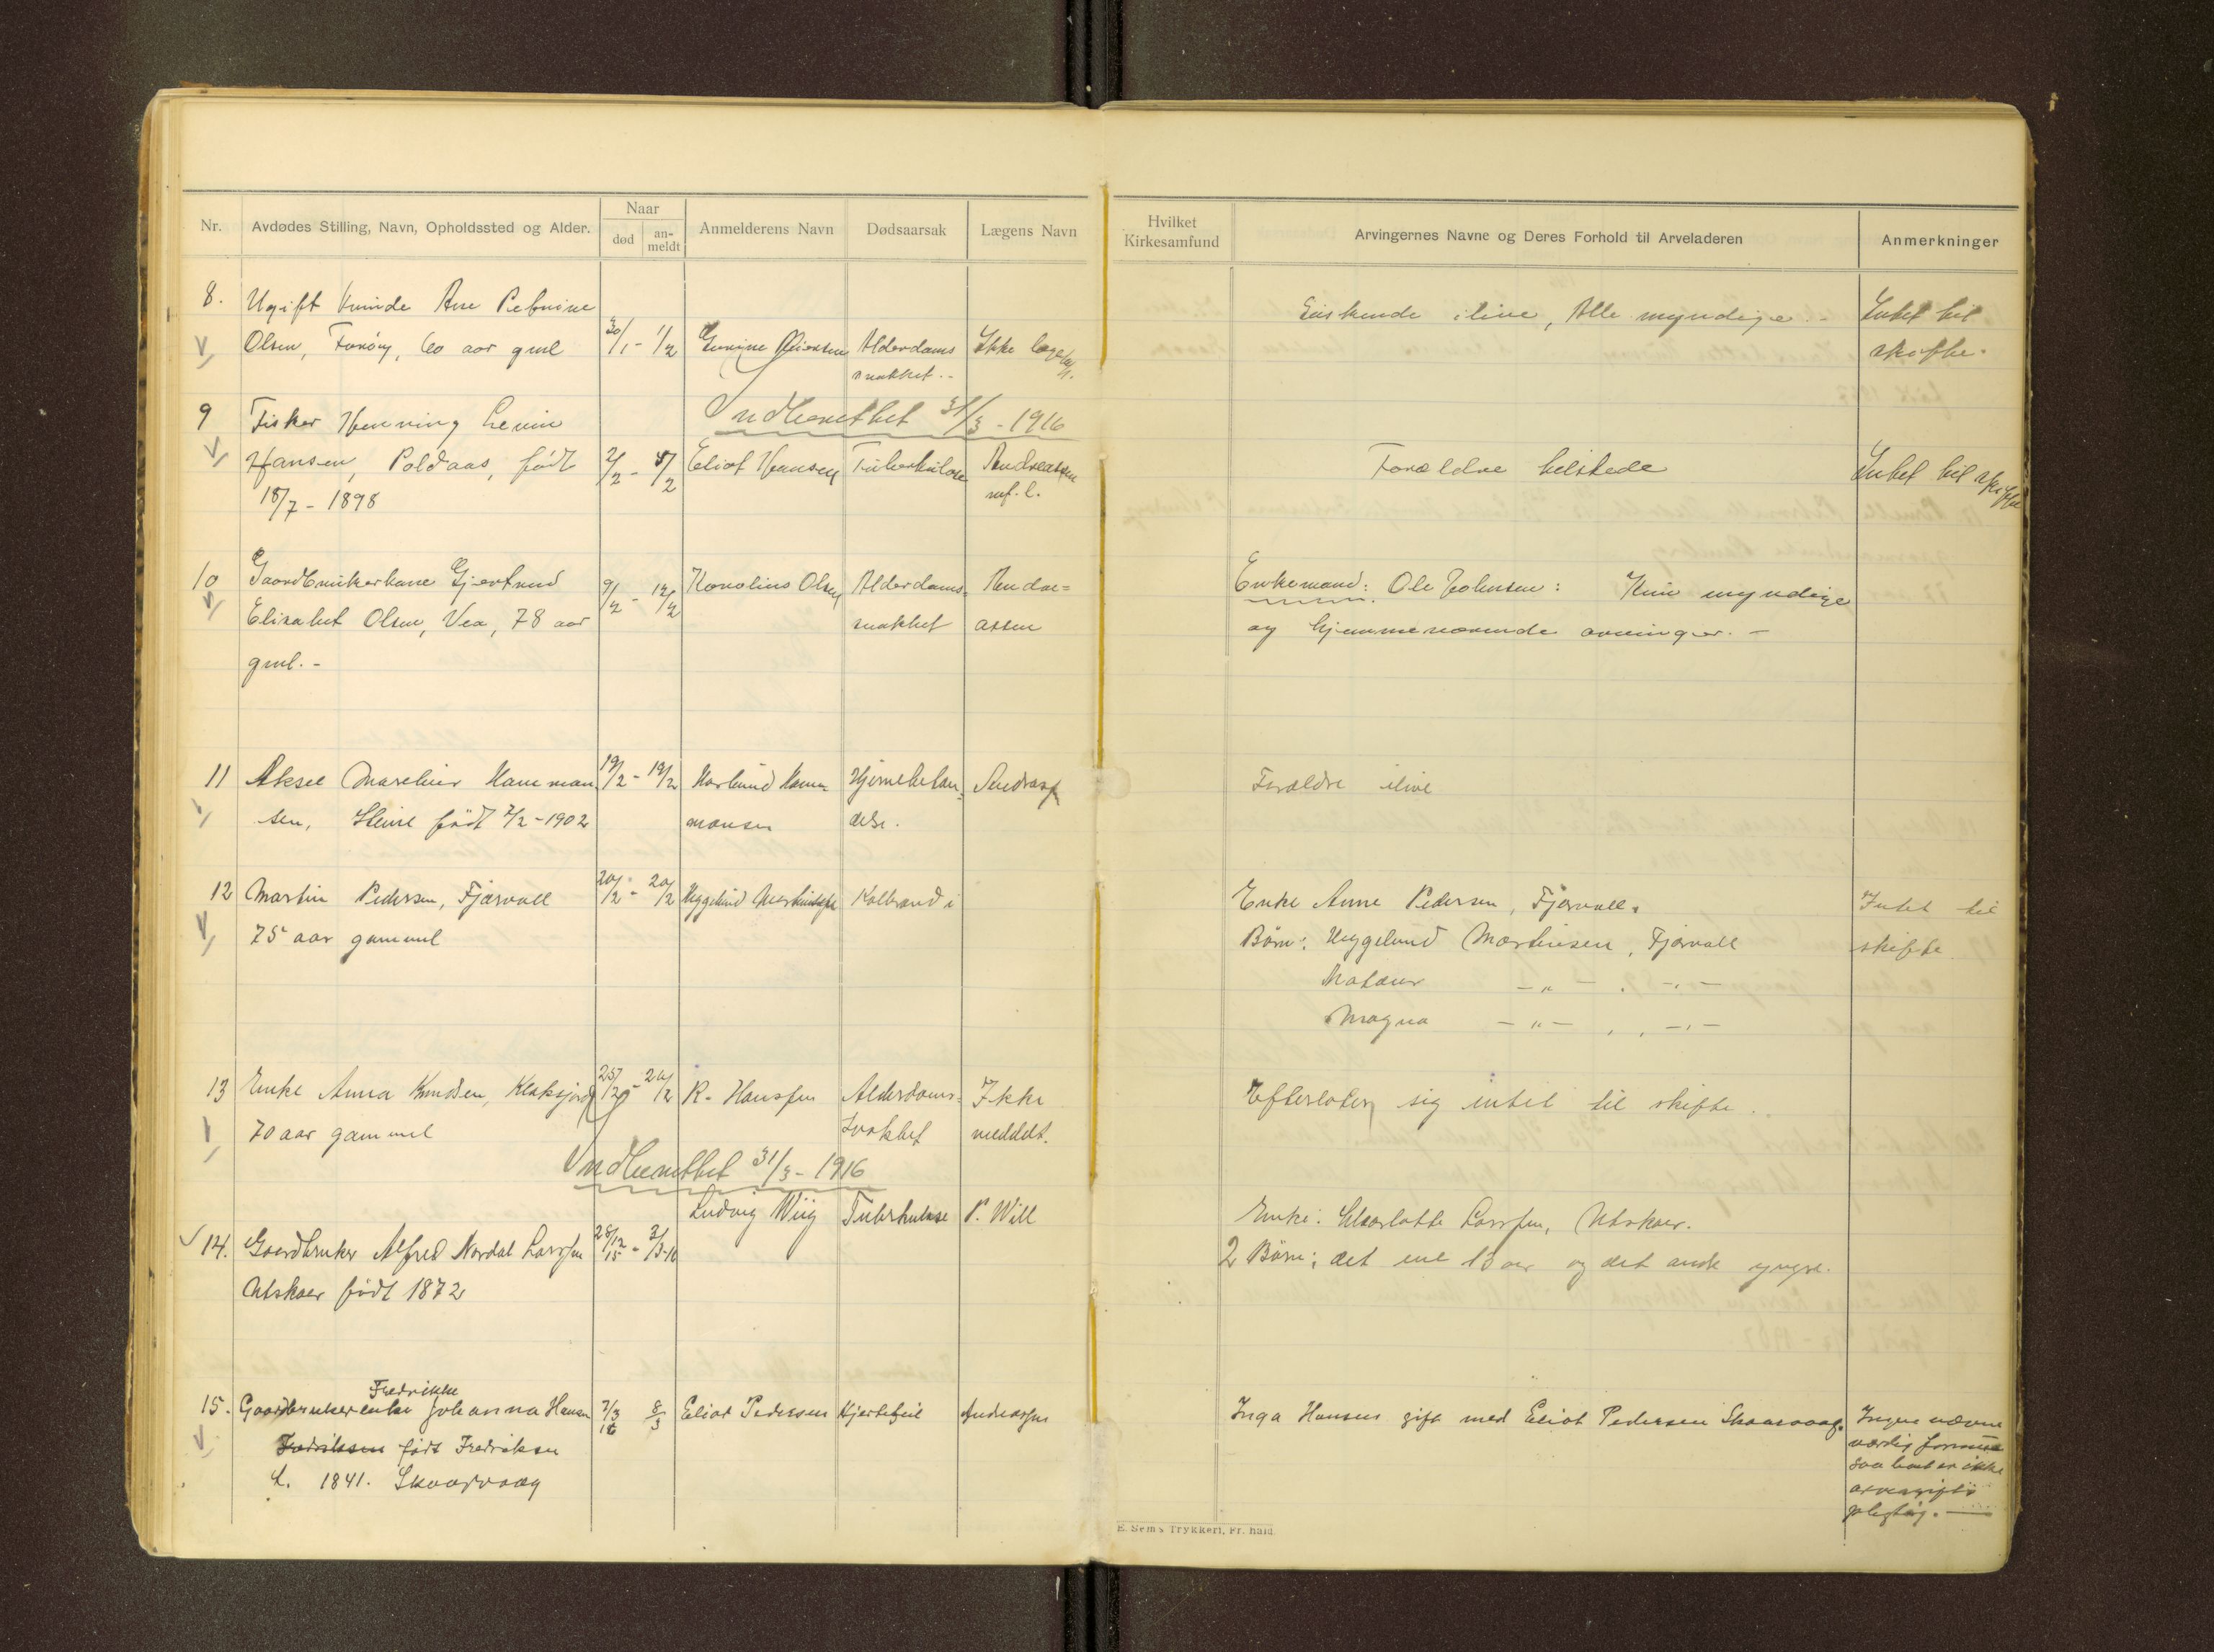 Nr.
Avdødes Stilling, Navn, Opholdssted og Alder.
Naar
død
an-
meldt
Anmelderens Navn
Dødsaarsak
Lægens Navn
Hvilket
Kirkesamfund
Arvingernes Navne og Deres Forhold til Arveladeren
Anmerkninger
8. Ugift kvinde Ane Petrine
Olsen, 60 aar gml 30/1 - 1/2 Alderdoms Ikke
svakhet.-
ilive, Alle myndige. - Intet til
skifte.
9 Fisker Henning Levin
Indberettet 31/3 - 1916
Hansen, Poldaas, født 2/2 - 8/2 Eliot Hansen Tuberkulose Andreassen
18/7 - 1898
Forældre tilstede Intet til skifte
10 Gaardbrukerkone Gjertrud 9/2 - 12/2 Konolius Olsen Alderdoms- Andre=
Elisabet Olsen, Vea, 78 aar svakhet assen
gml. -
Enkemand: Ole Johnsen: Kun myndige
og hjemmeværende arvinger. -
11 Aksel Marelius Hamman 19/2 - 19/2 Hjernebetæn=
sen, Steine født 7/2 - 1902 mansen delse.
Forældre ilive
12 Martin Pedersen, Fjærvoll 20/2 - 20/2 Hyggelund Martinsen Kolbrand i
75 aar gammel
Enke Anne Pedersen, Fjærvoll. Intet til
Børn: Hyggelund Martinsen, Fjærvoll skifte
- " - , - " -
Magna - " - , - " -
13 Enke Anna Knudsen, Klaksjord 25/2 - 26/2 R. Hanssen Alderdoms- Ikke
70 aar gammel svakhet meddelt.
Efterlater sig intet til skifte.
Indberettet 31/3 - 1916
Ludvig Wiig Tuberkulose P. Will
14. Gaardbruker Alfred Nordal Larssen 28/12 15 - 3/3-16
Utskaer født 1872
Enke: Charlotte Larssen, Utskaer.
2 Børn; det ene 13 aar og det andre yngre.
Fredrikke
15. Gaardbrukerenke Johanna Hansen 7/3 16 8/3 Eliot Pedersen Hjertefeil Andreassen
Fredriksen født Fredriksen
d. 1841. Skaarvaag
Inga Hansen gift med Eliot Pedersen Skaarvaag. Ingen nævne
værdig formue
saa boet er ikke
arveavgifts
pligtig. -
E. Sem's Trykkeri, Fr. hald